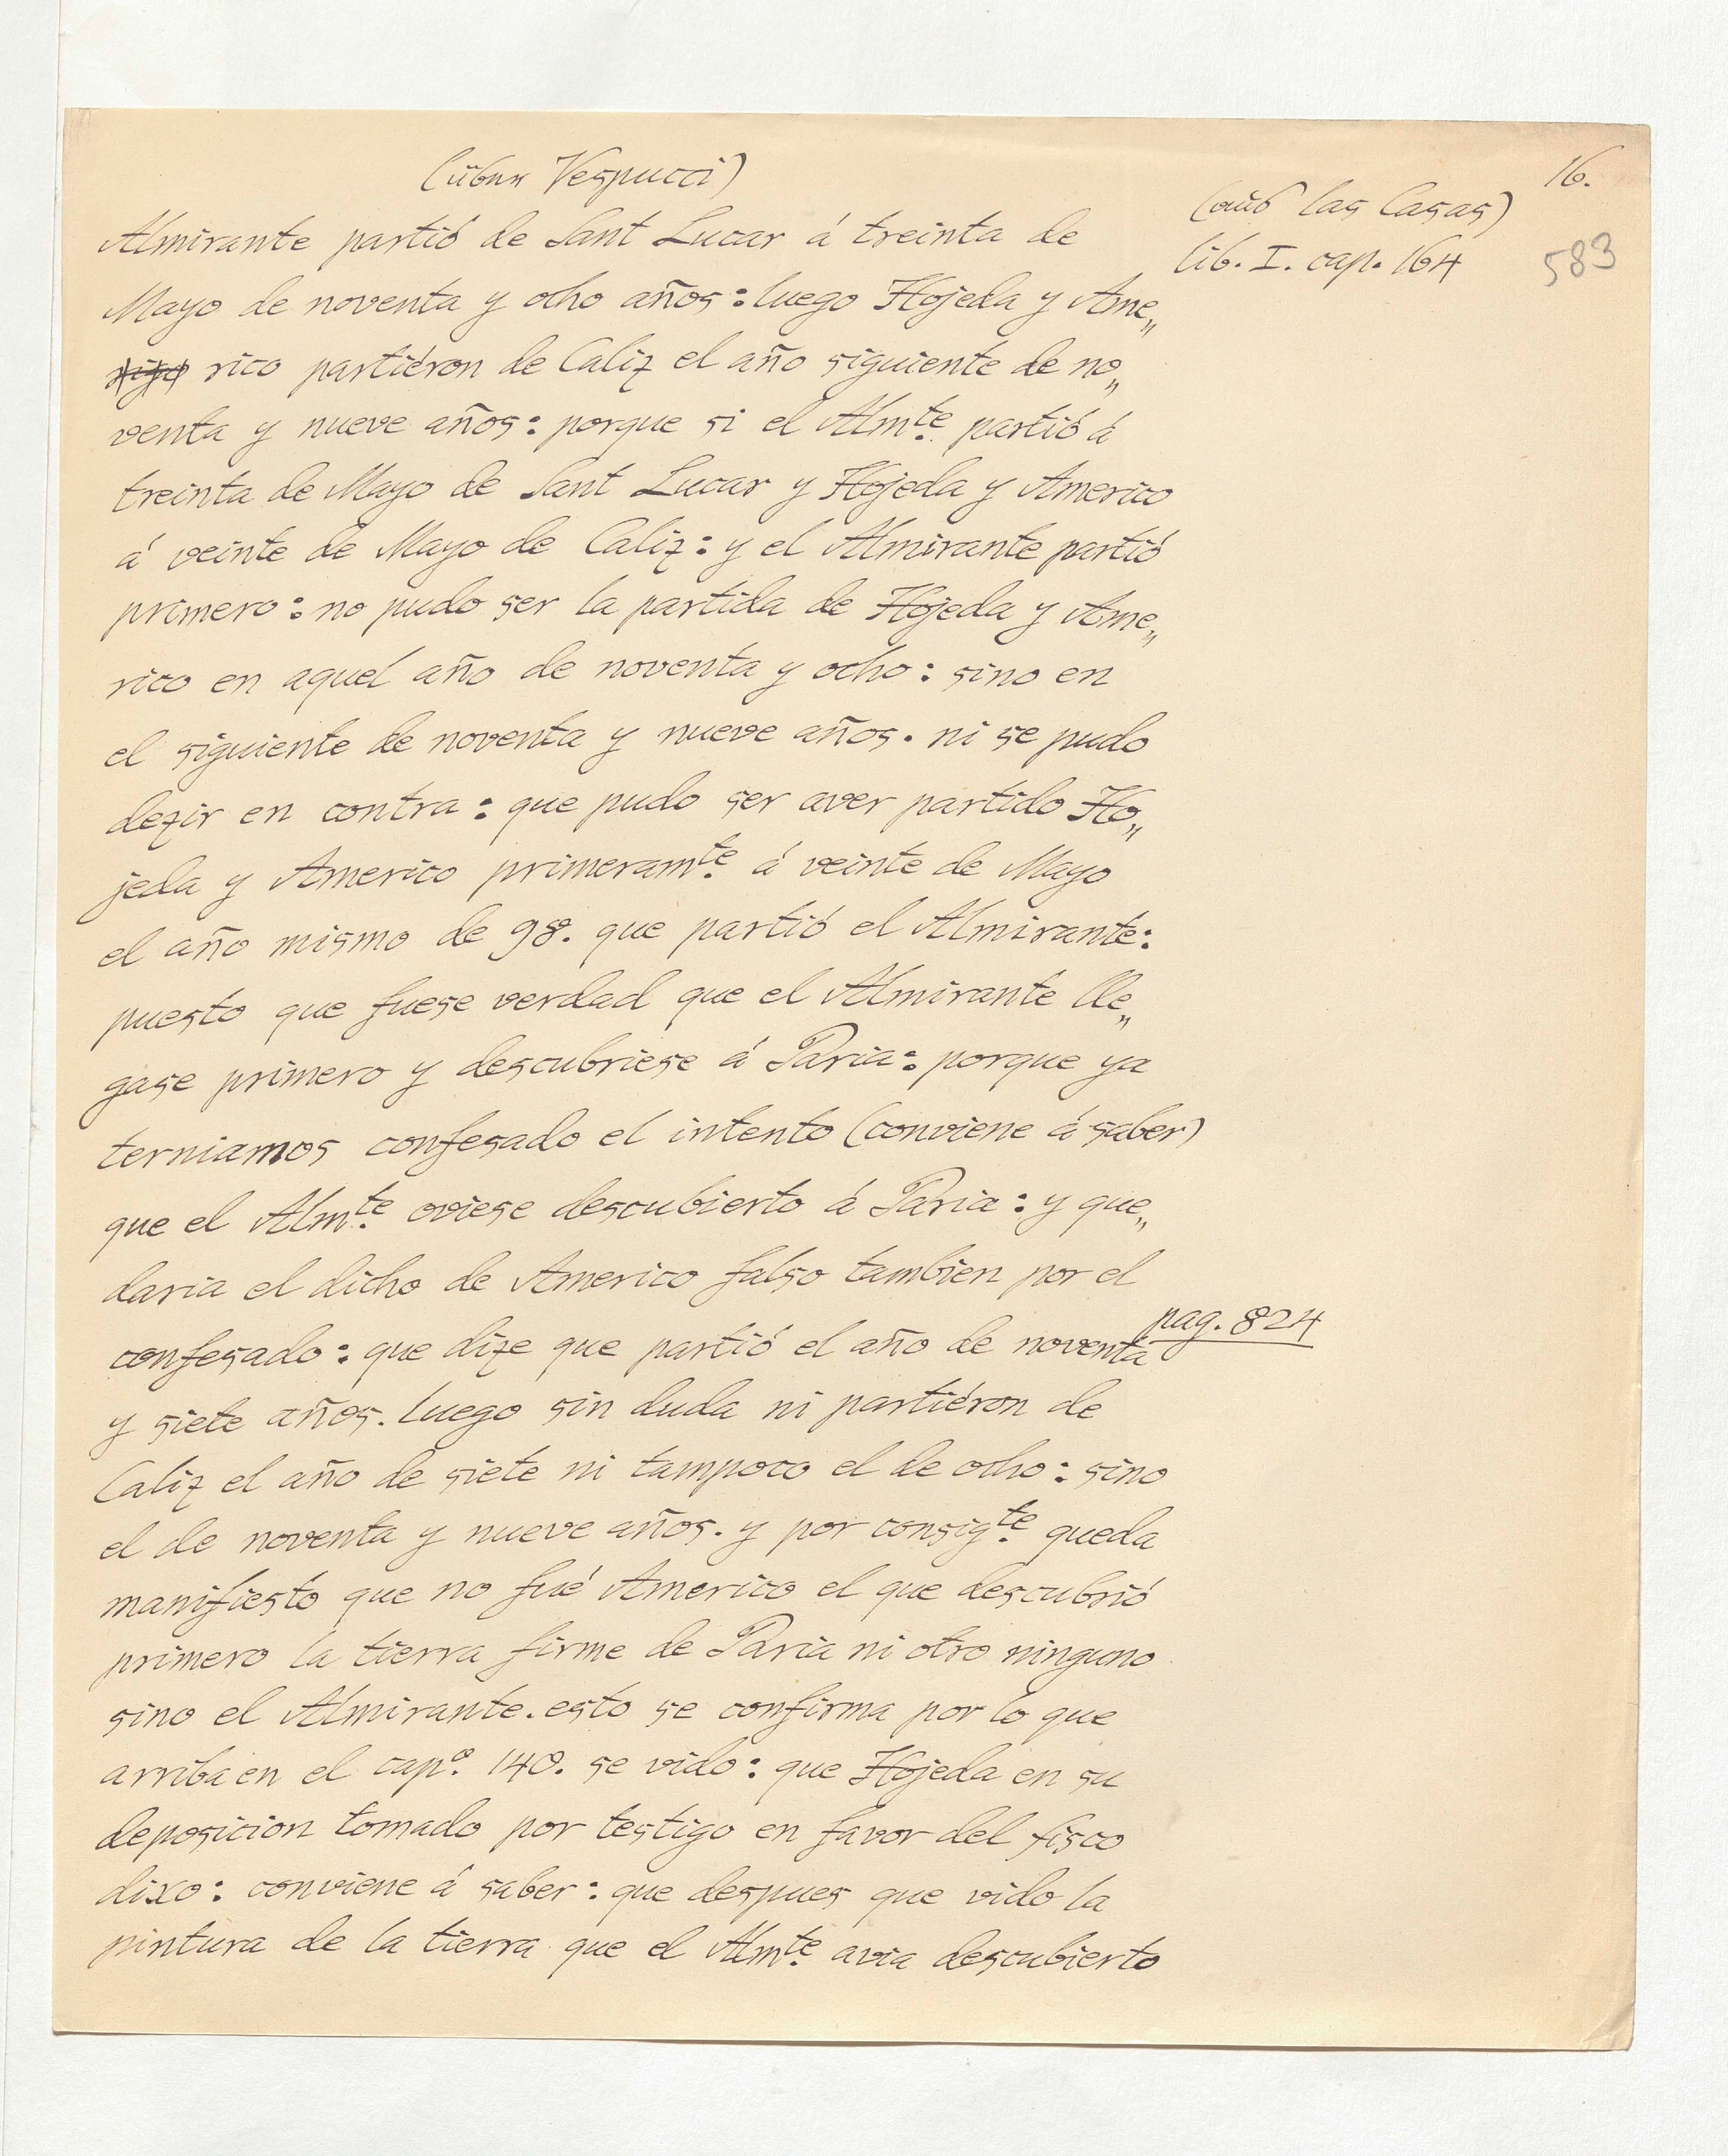 (über Vespucci)
16.
(aus las Casas)
lib. I. cap. 164
583
Almirante partió de Sant Lucar á treinta de
Mayo de noventa y ocho años: luego Hojeda y Ame„
rico partiéron de Caliz el año siguiente de no„
venta y nueve años: porque si el Almte. partió á
treinta de Mayo de Sant Lucar y Hojeda y Americo
á veinte de Mayo de Caliz: y el Almirante partió
primero: no pudo ser la partida de Hojeda y Ame„
rico en aquel año de noventa y ocho: sino en
el siguiente de noventa y nueve años. ni se pudo
dezir en contra: que pudo ser aver partido Ho„
jeda y Americo primeramte. á veinte de Mayo
el año mismo de 98. que partió el Almirante:
puesto que fuese verdad que el Almirante lle„
gase primero y descubriese á Paria: porque ya
terniamos confesado el intento (conviene á saber)
que el Almte. oviese descubierto á Paria: y que„
daria el dicho de Americo falso tambien por el
confesado: que dize que partió el año de noventa
pag. 824
y siete años. luego sin duda ni partiéron de
Caliz el año de siete ni tampoco el de ocho: sino
el de noventa y nueve años. y por consigte. queda
manifiesto que no fué Americo el que descubrió
primero la tierra firme de Paria ni otro ninguno
sino el Almirante. esto se confirma por lo que
arriba en el capo. 140. se vido: que Hojeda en su
deposicion tomado por testigo en favor del fisco
dixo: conviene á saber: que despues que vido la
pintura de la tierra que el Almte. avia descubierto